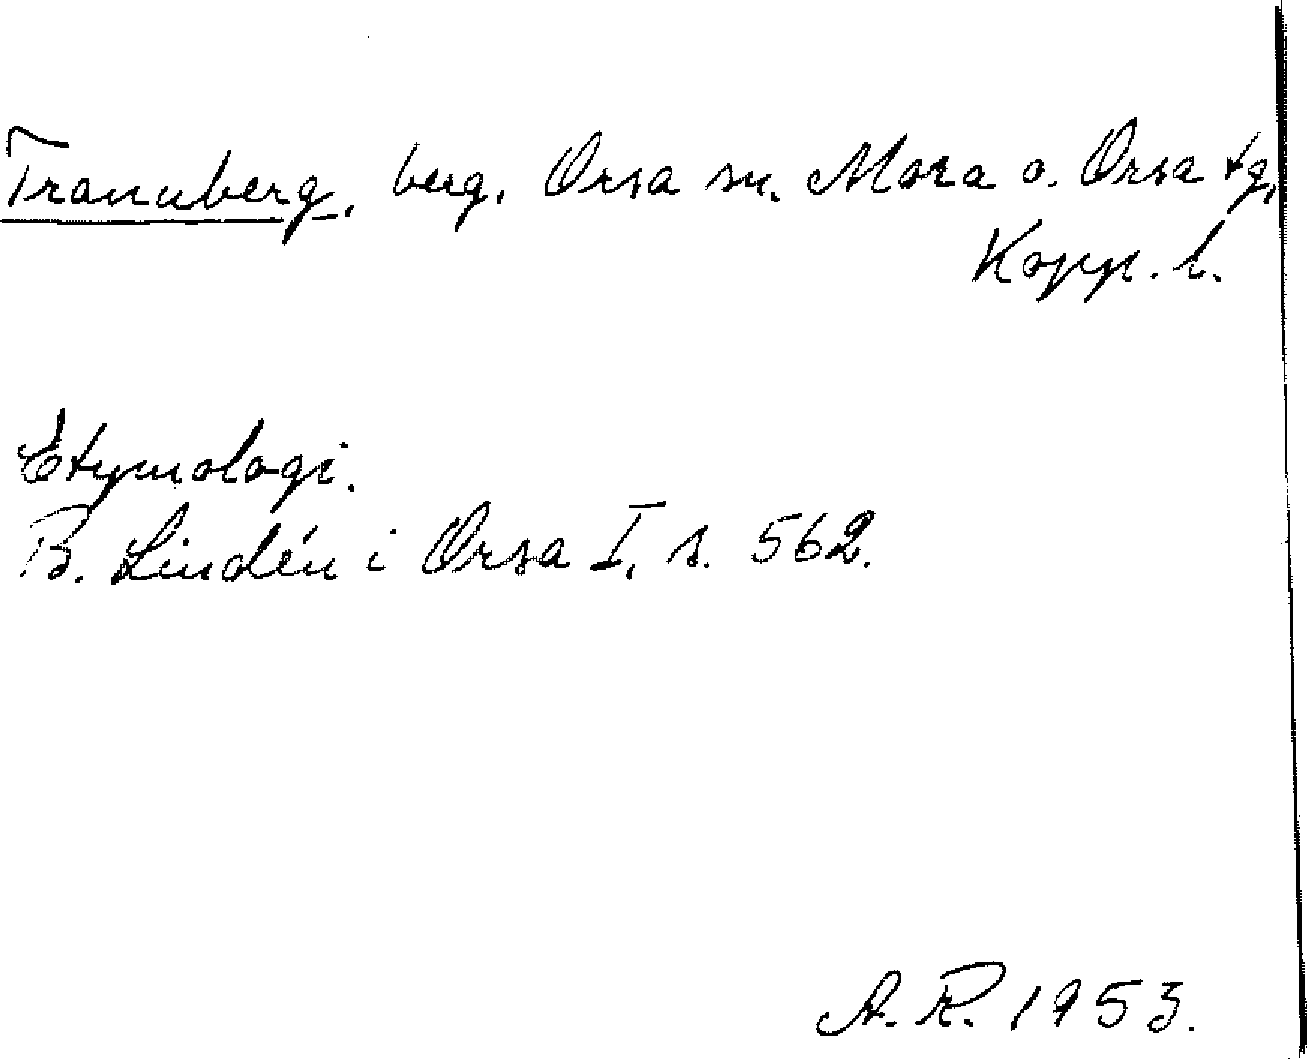 Tranuberg, berg, Orsa sn. Mora o. Orsa tg,
Kopp. l.
Etymologi.
B. Lindén i Orsa I, s. 562.
A. R. 1953.